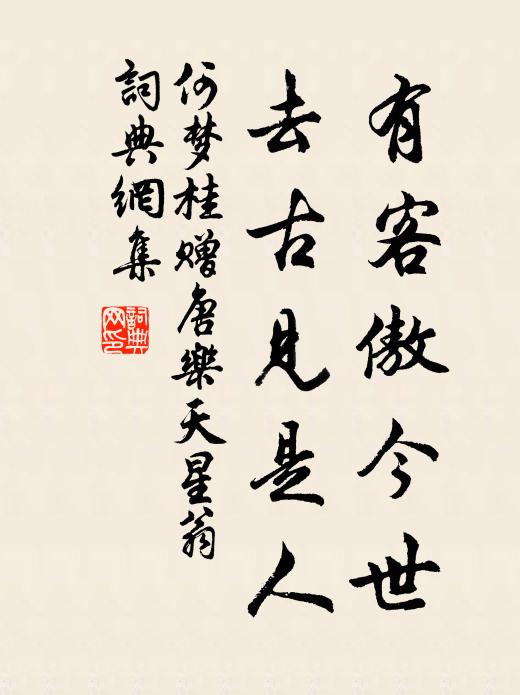 有客傲今世
去古见是人
何梦桂赠唐樂天星翁
詞典網集
詞典网印